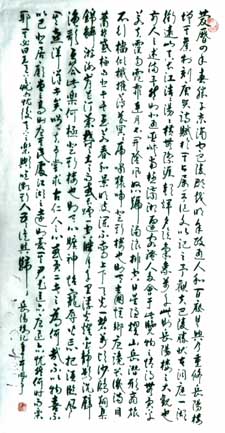 慶曆四年春滕子京謫守巴陵郡越明年政通人和百廢具興乃重修岳陽樓
增其舊制刻唐賢今人詩賦於其上屬予作文以記之予觀夫巴陵勝狀在洞庭一湖
銜遠山吞長江浩浩湯湯橫無際涯朝暉夕陰氣象萬千此則岳陽樓之大觀也
前人之述備矣然則北通巫峽南極瀟湘遷客騷人多會于此覽物之情得無異乎
若夫霪雨霏霏連月不開陰風怒號濁浪排空日星隱曜山岳潛形商旅
不行檣傾楫摧薄暮冥冥虎嘯猿啼登斯樓也則有去國懷鄉憂讒畏譏滿目
蕭然感極而悲者矣至若春和景明波瀾不驚上下天光一碧萬頃沙鷗翔集
錦鱗游泳岸芷汀蘭郁郁青青而或長煙一空皓月千里浮光躍金靜影沉璧
漁歌互答此樂何極登斯樓也則有心曠神怡寵辱偕忘把酒臨風
其喜洋洋者矣嗟夫予嘗求古仁人之心或異二者之為何哉不以物喜不
以己悲居廟堂之高則憂其民處江湖之遠則憂其君是進亦憂退亦憂然則何時而樂
耶其必曰先天下之憂而憂後天下之樂而樂歟噫微斯人吾誰與歸
岳陽樓記